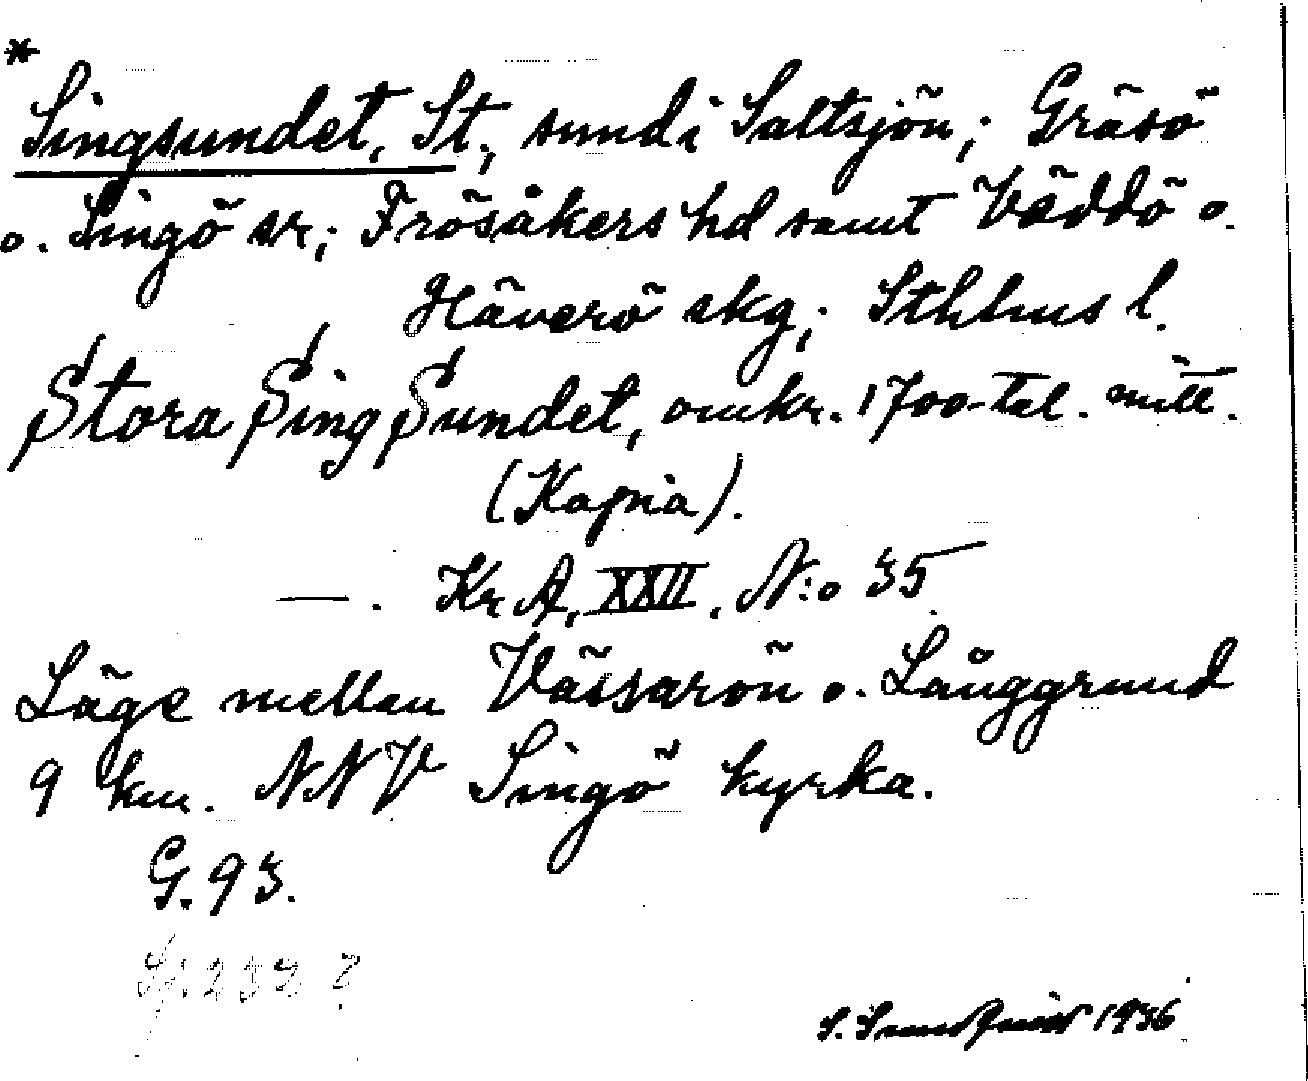 *
Singsundet, St., sund i Saltsjön; Gräsö
o. Singö sr; Frösåkers hd samt Väddö o.
Häverö skg; Sthlms l.
Stora Sing Sundet, omkr. 1700-tal. mitt.
(Kopia).
—. Kr A, XXII, N:o 35
Läge mellan Vässarön o. Långgrund
9 km. NNV Singö kyrka.
G. 93.
232 ?
S. 1936